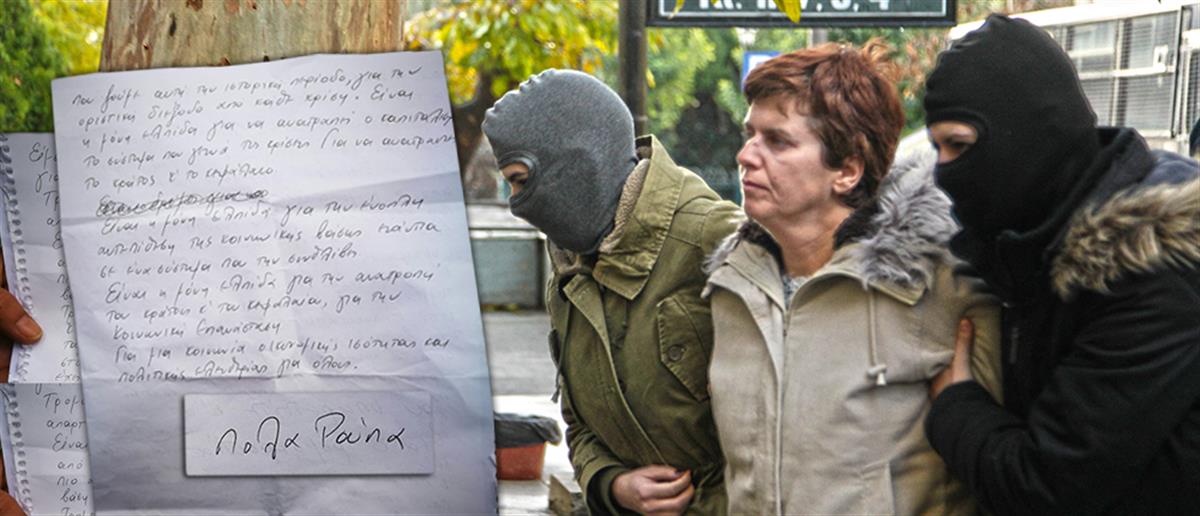 που βιούμε αυτή την ιστορική περίοδο, για την
οριστική διέξοδο από κάθε κρίση. Είναι
η μόνη ελπίδα για να ανατραπεί ο καπιταλισμός
το σύστημα που γεννά τις κρίσεις. Για να ανατραπεί
το κράτος κ' το κεφάλαιο
Είναι η μόνη ελπίδα για την ένοπλη
αντεπίθεση της κοινωνικής βάσης ενάντια
σε ένα σύστημα που την συνθλίβει
Είναι η μόνη ελπίδα για την ανατροπή
του κράτους κ' του κεφαλαίου, για την
Κοινωνική Επανάσταση
Για μια κοινωνία οικονομικής ισότητας και
πολιτικής ελευθερίας για όλους.
Πόλα Ρούπα
Τρομο
απαρτ
Είναι
από
πιο
βάση